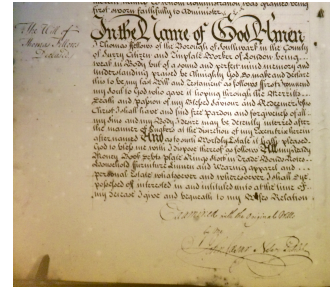 first sworn faithfully to Administer
The Will of
Thomas Fellows
Deceased
In the Name of God Amen
I Thomas Fellows of the Borough of Southwark in the County
of Surry Citizen and Turner of London being
weak in Body but of sound and perfect mind memory and
understanding praised be Almighty God do make and declare
this to be my last Will and Testament as follows first I commend
my Soul to God who gave it hoping through the Merritts
Death and passion of my blessed Saviour and Redeemer Jesus
Christ I shall have and find free pardon and forgiveness of all
my sins and my Body I desire may be decently interred after
the manner of at the discretion of my Executrix herein
after named And as to such Worldly Estate it hath pleased
God to bless me with I dispose thereof as follows All my Ready
Money Debts plate Rings Stock in Trade Bonds Notes
Household furniture Linnen and Wearing apparel and
personal Estate whatsoever and wheresoever I shall dye
possessed of interested in and intituled unto at the time of
my decease I give and bequeath to my Relation
with the Original Will